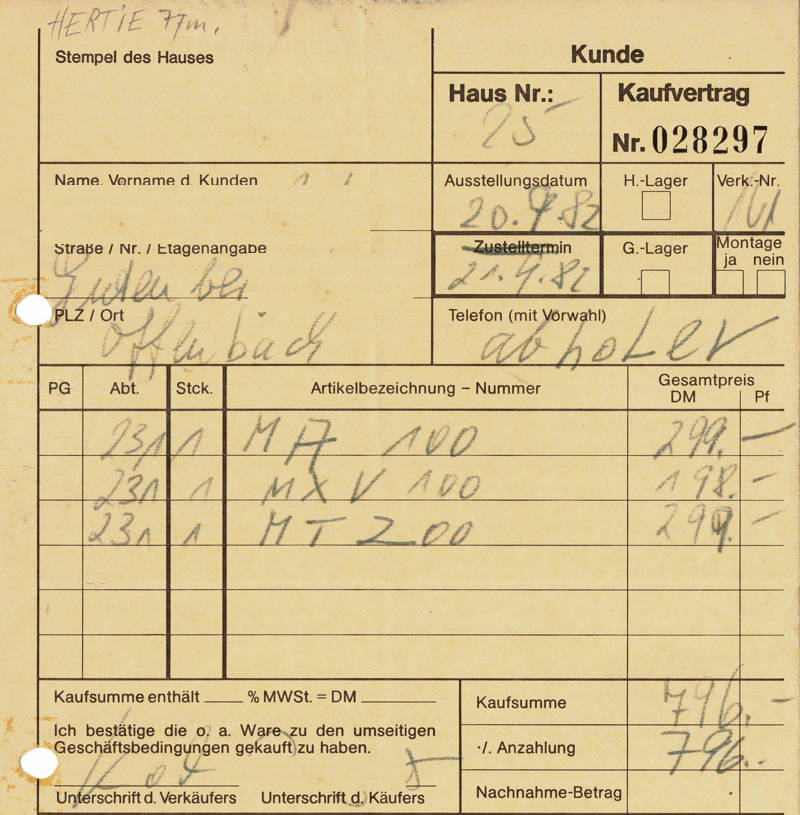 HERTIE
Stempel des Hauses
Kunde
Haus Nr.:
25
Kaufvertrag
Nr. 028297
Name, Vorname d. Kunden
Ausstellungsdatum
20.4.82
H.-Lager
Verk.-Nr.
Straße / Nr. / Etagenangabe
Zustelltermin
21.4.82
G.-Lager
Montage
ja nein
bei
PLZ / Ort
Offenbach
Telefon (mit Vorwahl)
abholer
PG Abt. Stck. Artikelbezeichnung – Nummer Gesamtpreis
DM Pf
231 1 MA 100 299.—
231 1 MXV 100 198.—
231 1 MT 200 299.—
Kaufsumme enthält ____ % MWSt. = DM ________
Kaufsumme 796.—
Ich bestätige die o. a. Ware zu den umseitigen
Geschäftsbedingungen gekauft zu haben.
·/. Anzahlung 796.-
Unterschrift d. Verkäufers Unterschrift d. Käufers
Nachnahme-Betrag